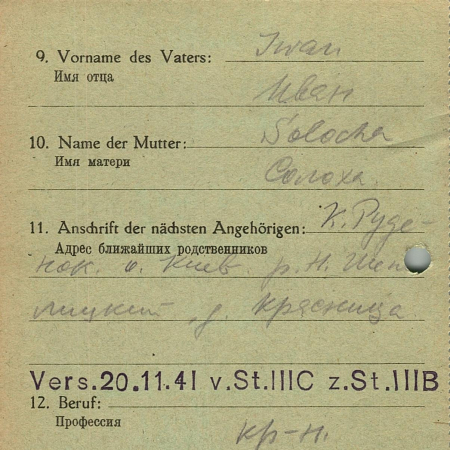 9. Vorname des Vaters: Iwan
Имя отца
Иван
10. Name der Mutter: Solocha
Имя матери
Солоха
11. Anschrift der nächsten Angehörigen: К. Руде-
Адрес ближайших родственников
нок. о. Киев р. Н. Шеп
лицкий, д. Крясница
Vers.20.11.41 v.St.IIIC z.St.IIIB
12. Beruf:
Профессия
кр-н.